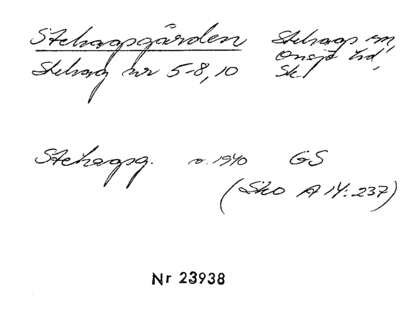 Stehagsgården Stehags sn,
Stehag nr 5-8, 10 Onsjö hd,
Sk.
Stehagsg. v. 1940 GS
(Sko A 14:237)
Nr 23938